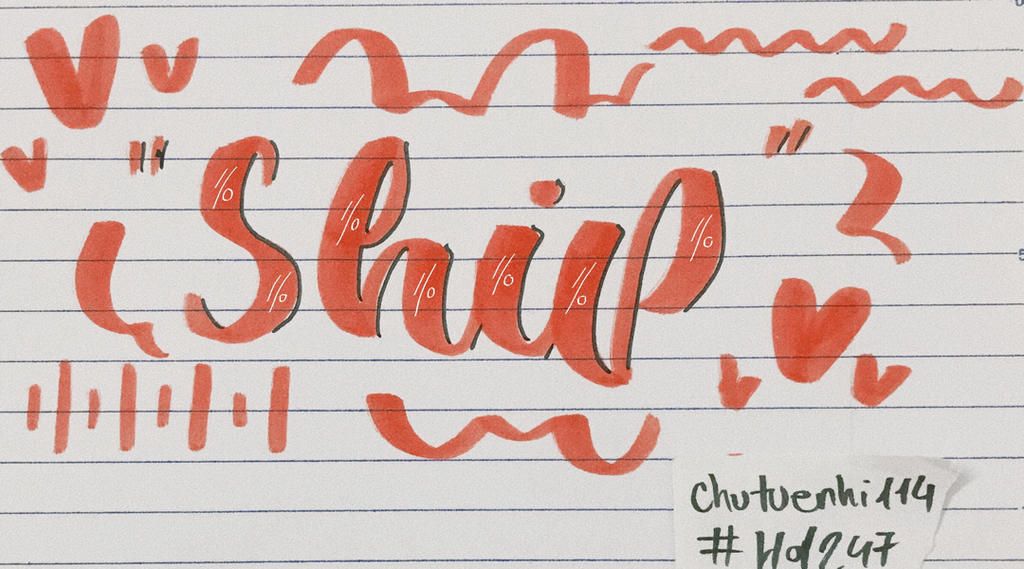 "Ship"
chutuenhi114
#Hd247